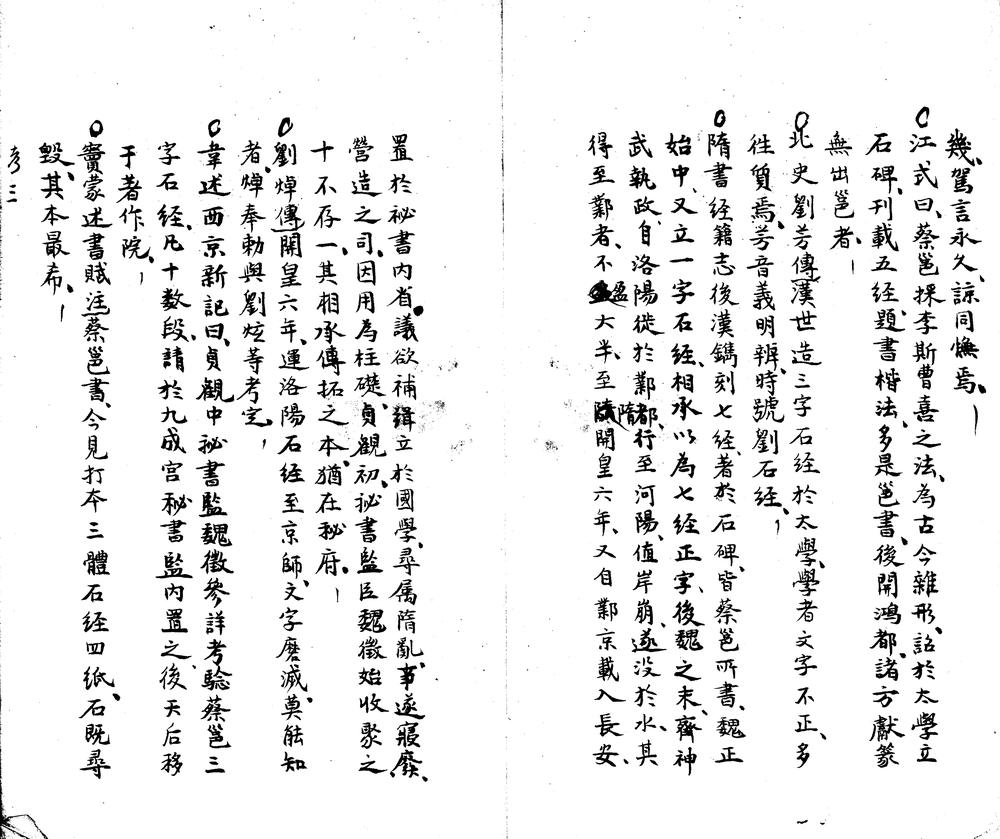 幾、駕言永久、諒同憮焉、
江式曰、蔡邕採李斯曹喜之法、為古今雜形、詔於太學立
石碑、刊載五經、題書楷法、多是邕書、後開鴻都、諸方獻篆
無出邕者、
北史劉芳傳漢世造三字石經於太學、學者文字不正、多
往質焉、芳音義明辨、時號劉石經、
隋書經籍志後漢鐫刻七經、著於石碑、皆蔡邕所書、魏正
始中、又立一字石經、相承以為七經正字、後魏之末、齊神
武執政、自洛陽徙於鄴都、行至河陽、值岸崩、遂没於水、其
得至鄴者、不盈大半、至隋開皇六年、又自鄴京載入長安、
置於祕書内省、議欲補緝立於國學、尋属隋亂、事遂寢廢、
營造之司、因用為柱礎、貞觀初、祕書監臣魏徵始收聚之
十不存一、其相承傳拓之本、猶在秘府、
劉焯傳開皇六年、運洛陽石經至京師、文字磨滅、莫能知
者、焯奉勅與劉炫等考定、
韋述西京新記曰、貞觀中祕書監魏徵參詳考驗蔡邕三
字石經、凡十數段、請於九成宮秘書監内置之、後天后移
于著作院、
竇蒙述書賦注蔡邕書、今見打本三體石經四紙、石既尋
毀、其本最希、
考三